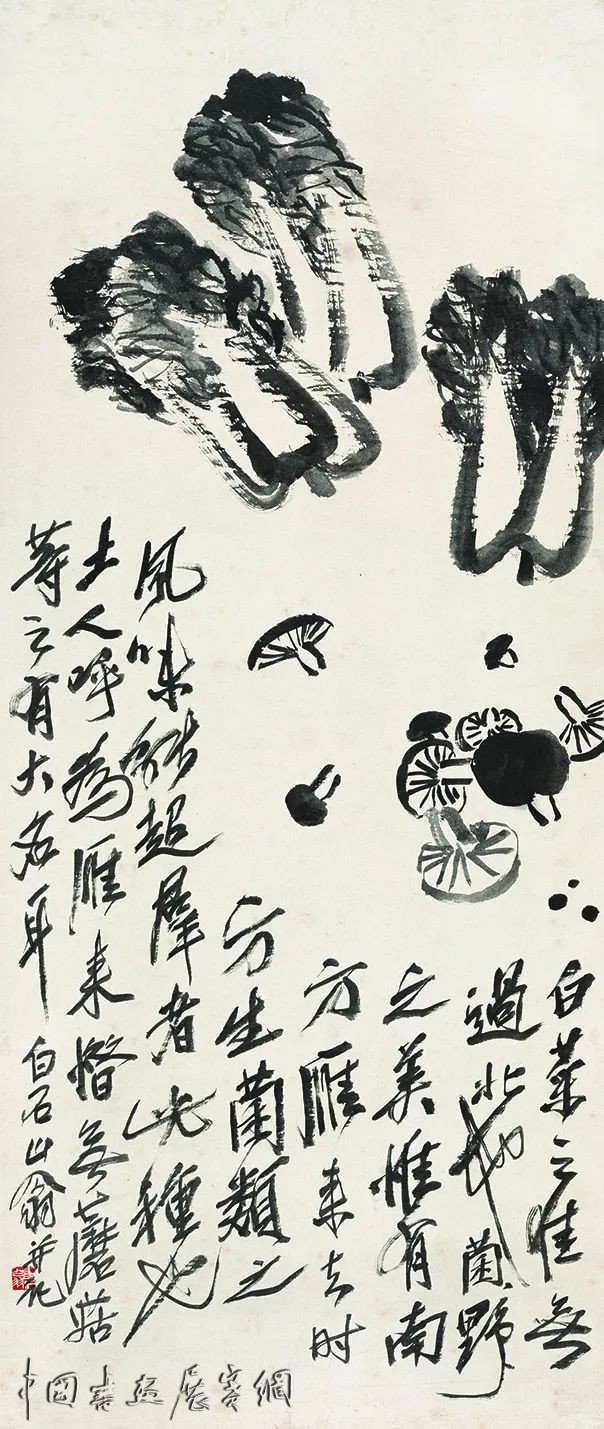 白菜之佳無
過北地菌野
之美惟有南
方雁來之时
方生菌類之
風味能超羣者此種也
土人呼為雁來蕈無蘑菇
等之有大名耳
白石山翁并記
中國書画展賽網